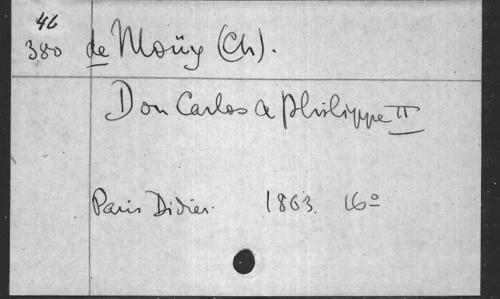 46
380 de Moüy (Ch).
Don Carlos a Philippe II
Paris Didier. 1863. 16º